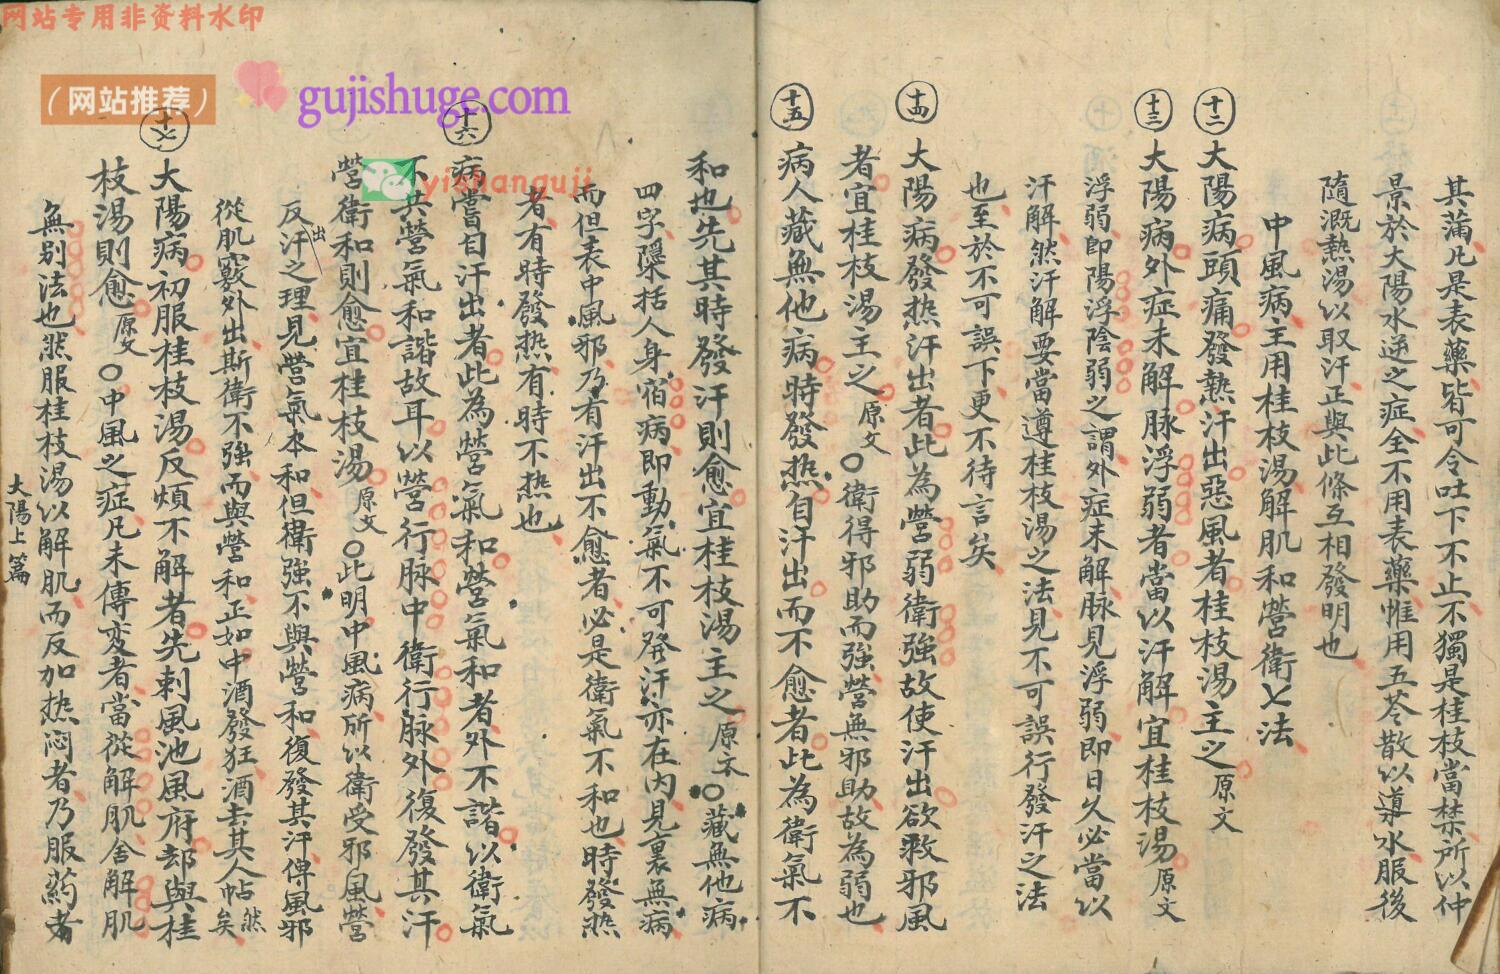 网站专用非资料水印
（网站推荐）
gujishuge.com
yishanguji
其蒲凡是表藥皆可令吐下不止不獨是桂枝當禁所以仲
景於大陽水逆之症全不用表藥惟用五苓散以導水服後
隨溉熱湯以取汗正與此條互相發明也
中風病主用桂枝湯解肌和營衛七法
十二 大陽病頭痛發熱汗出惡風者桂枝湯主之原文
十三 大陽病外症未解脉浮弱者當以汗解宜桂枝湯原文
浮弱即陽浮陰弱之謂外症未解脉見浮弱即日久必當以
汗解然汗解要當遵桂枝湯之法見不可誤行發汗之法
也至於不可誤下更不待言矣
十四 大陽病發热汗出者此為營弱衛強故使汗出欲救邪風
者宜桂枝湯主之原文○衛得邪助而強營無邪助故為弱也
十五 病人藏無他病時發热自汗出而不愈者此為衛氣不
和也先其時發汗則愈宜桂枝湯主之原文○藏無他病
四字隱括人身宿病即動氣不可發汗亦在内見裏無病
而但表中風邪乃有汗出不愈者必是衛氣不和也時發热
者有時發热有時不热也
十六 病嘗自汗出者此為營氣和營氣和者外不諧以衛氣
不共營氣和諧故耳以營行脉中衛行脉外復發其汗
營衛和則愈宜桂枝湯原文○此明中風病所以衛受邪風營
反汗出之理見營氣本和但衛強不與營和復發其汗俾風邪
從肌竅外出斯衛不強而與營和正如中酒發狂酒去其人帖然矣
十七 大陽病初服桂枝湯反煩不解者先刺風池風府却與桂
枝湯則愈原文○中風之症凡未傳変者當從解肌舍解肌
無别法也然服桂枝湯以解肌而反加热闷者乃服药者
大陽上篇